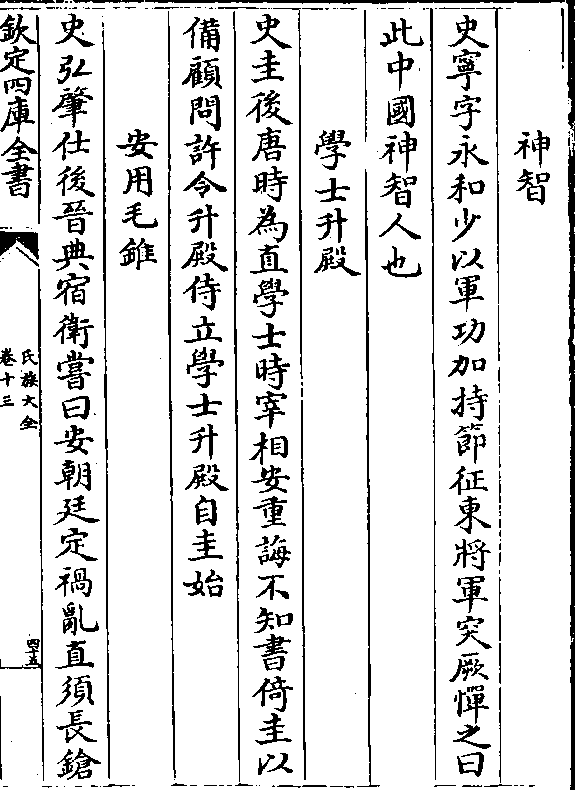 神智
史寧字永和少以軍功加持節征東將軍突厥憚之曰
此中國神智人也
學士升殿
史圭後唐時為直學士時宰相安重誨不知書倚圭以
備顧問許令升殿侍立學士升殿自圭始
安用毛錐
史弘肇仕後晉典宿衛嘗曰安朝廷定禍亂直須長鎗
欽定四庫全書
氏族大全
卷十三
四十五